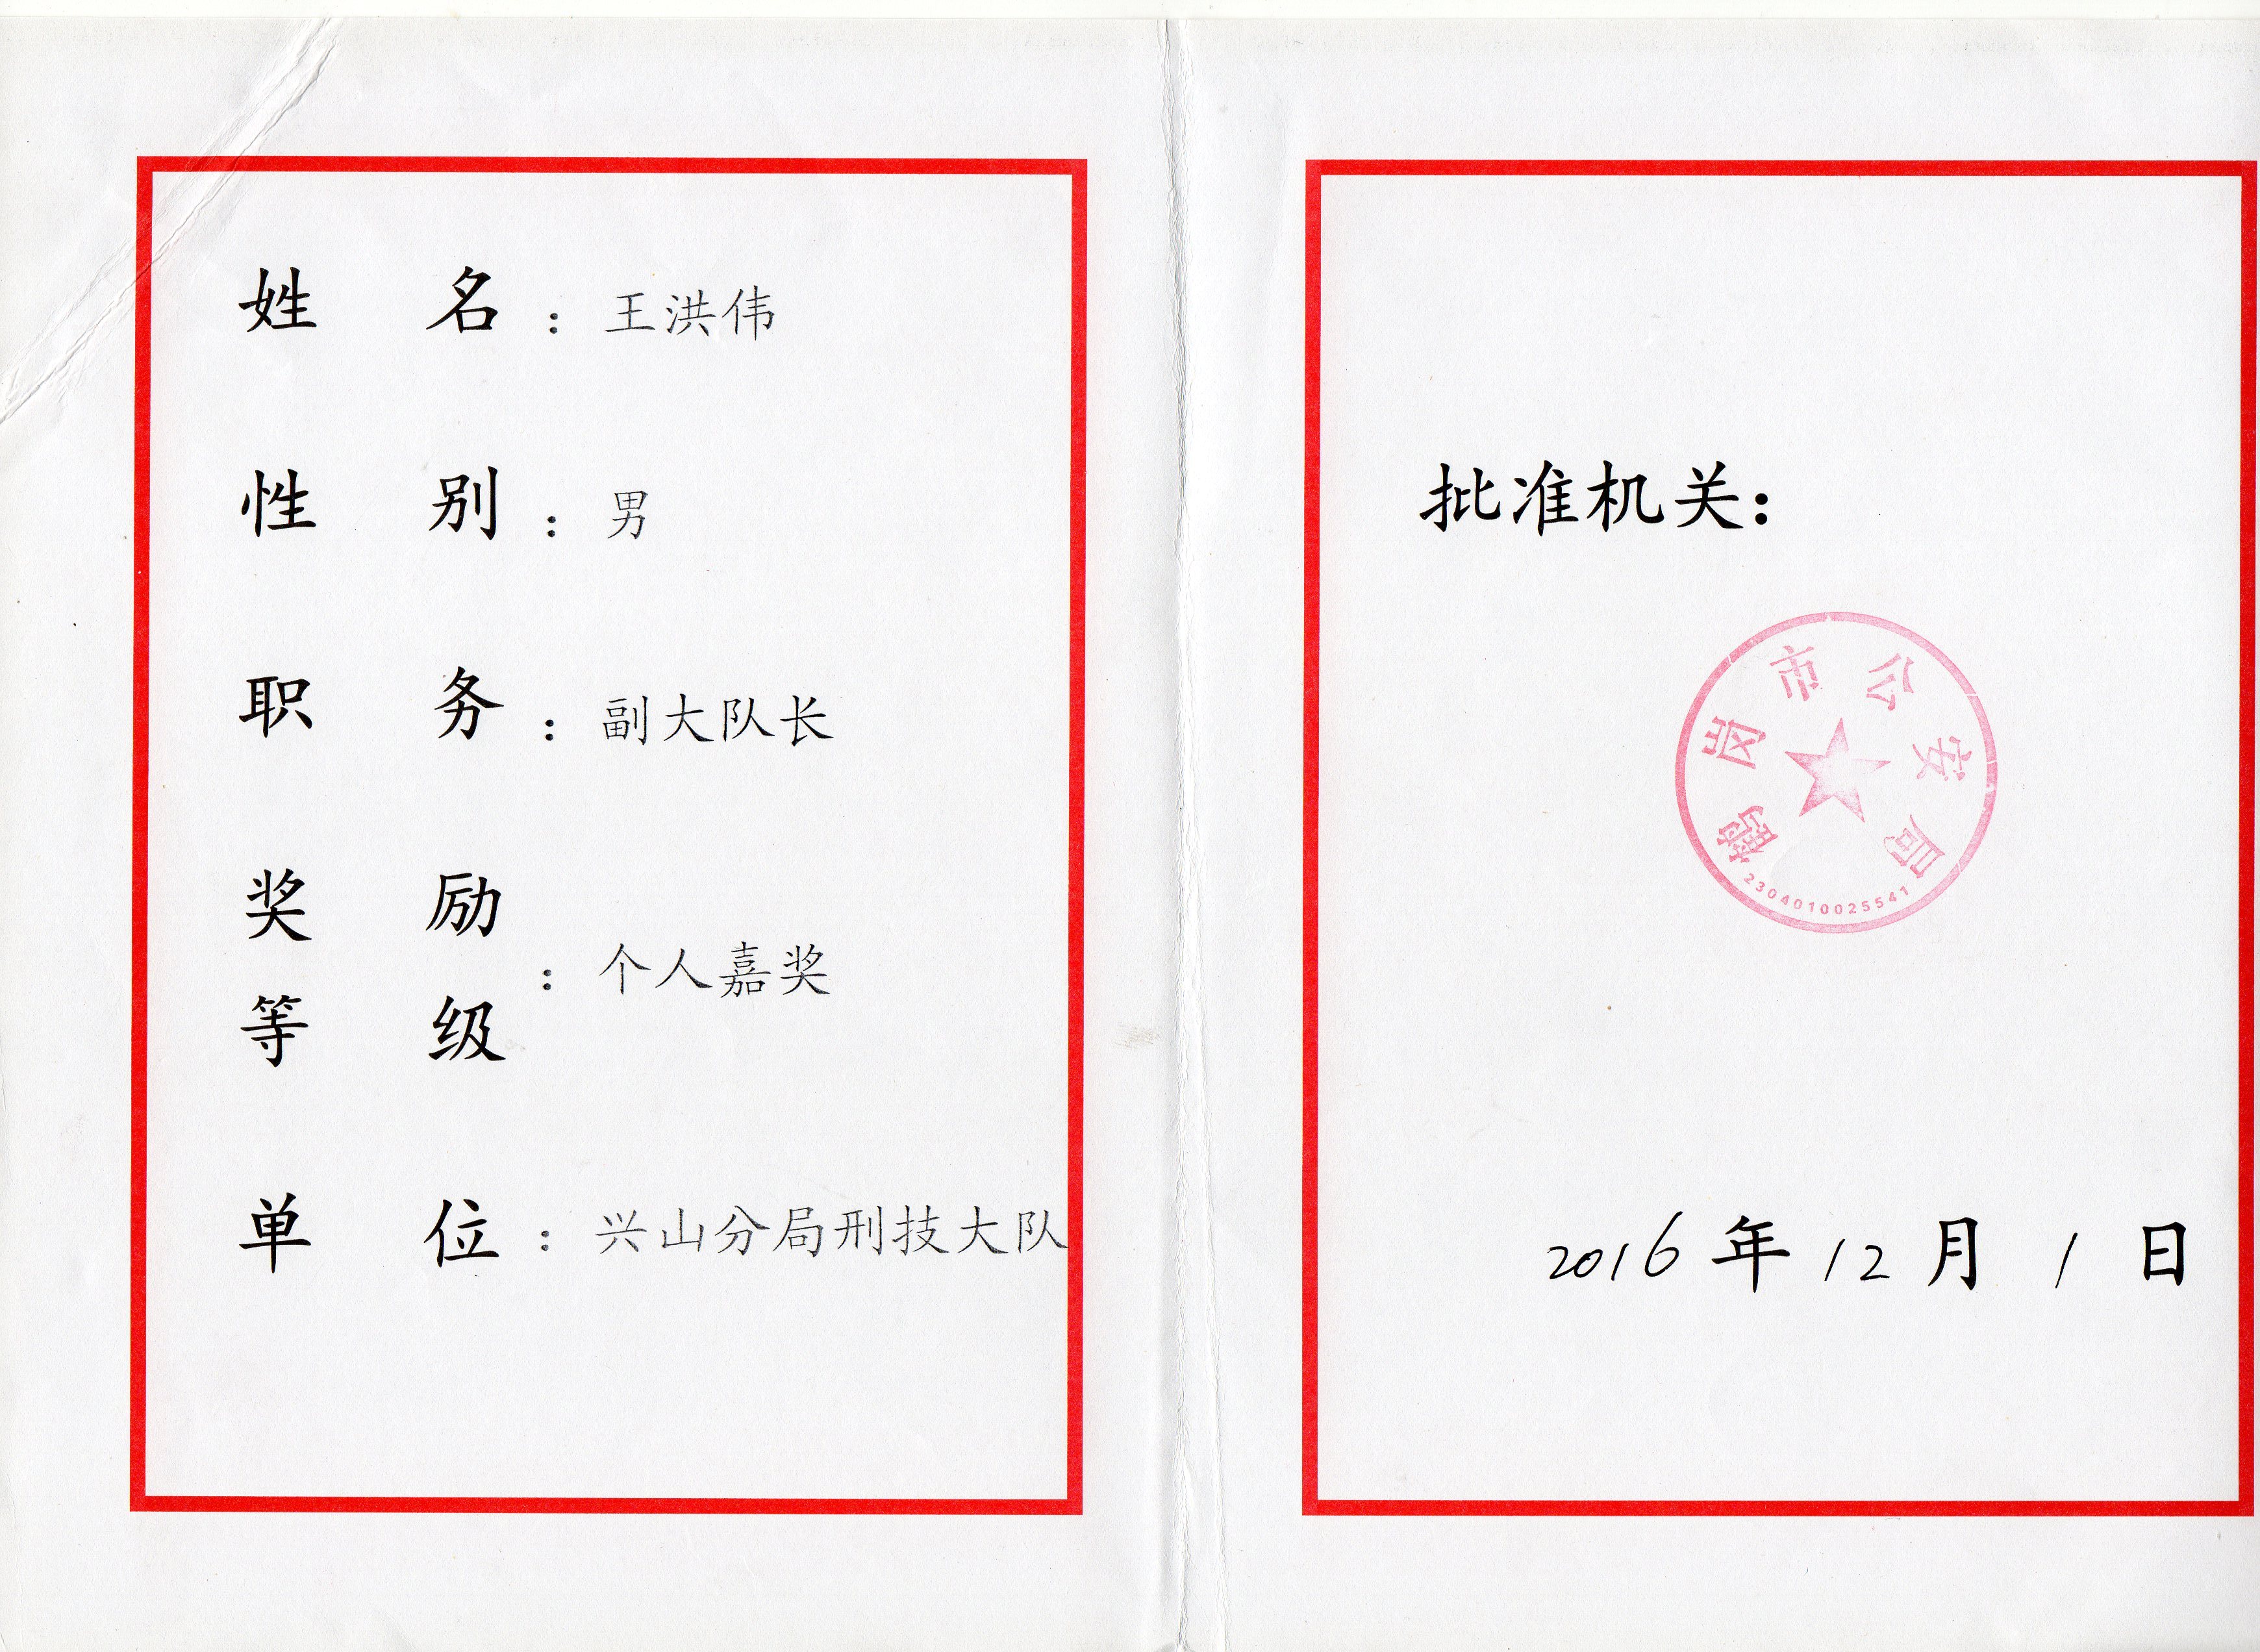 姓名：王洪伟
性别：男
职务：副大队长
奖励等级：个人嘉奖
单位：兴山分局刑技大队
批准机关：
鹤岗市公安局
2304010025541
2016年12月1日